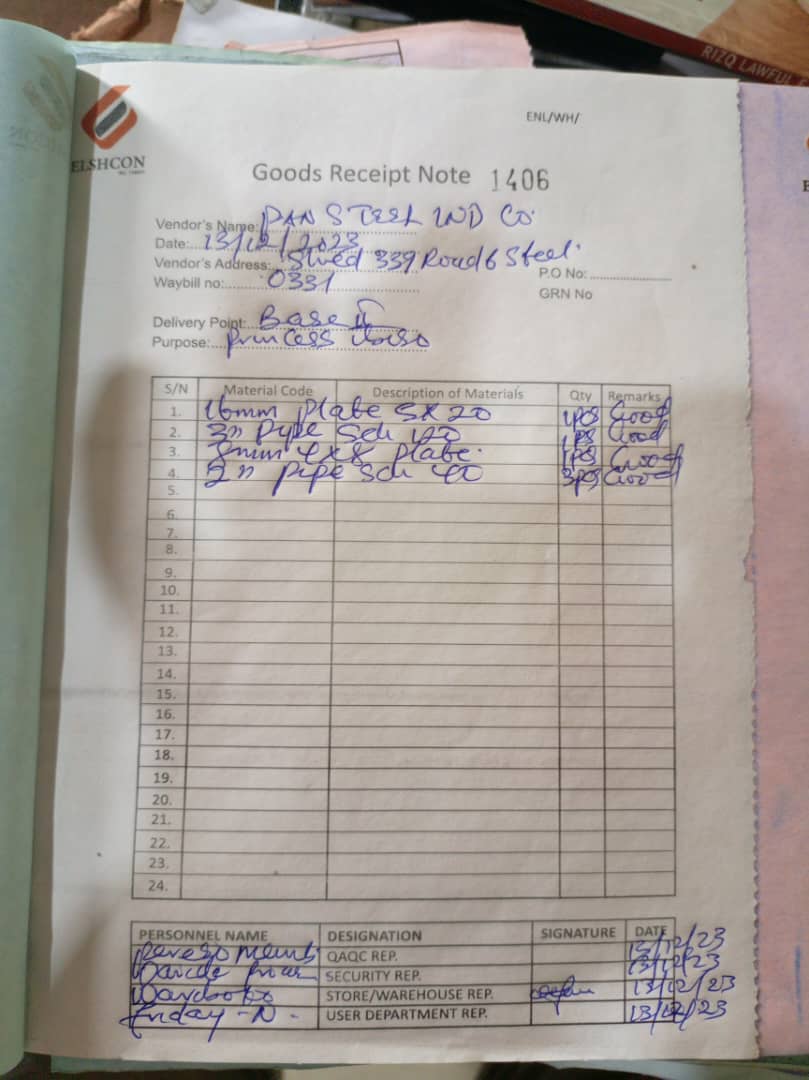 RIZQ LAWFUL
ENL/WH/
ELSHCON
Goods Receipt Note 1406
Vendor's Name: PAN STEEL IND CO.
Date: 13/12/2023
Vendor's Address: Shed 339 Road 6 Steel.
P.O No:
Waybill no: 0331
GRN No
Delivery Point: Base II
Purpose: Princess
S/N Material Code Description of Materials Qty Remarks
1. 16mm Plate 5x20 1pcs Good
2. 3" Pipe Sch 120 1ps Good
3. 8mm 4x8 Plate. 1ps Good
4. 2" pipe Sch 40 3pcs Good
5.
6.
7.
8.
9.
10.
11.
12.
13.
14.
15.
16.
17.
18.
19.
20.
21.
22.
23.
24.
PERSONNEL NAME DESIGNATION SIGNATURE DATE
QAQC REP. 13/12/23
SECURITY REP. 13/12/23
STORE/WAREHOUSE REP. 13/12/23
Friday -N- USER DEPARTMENT REP. 13/12/23